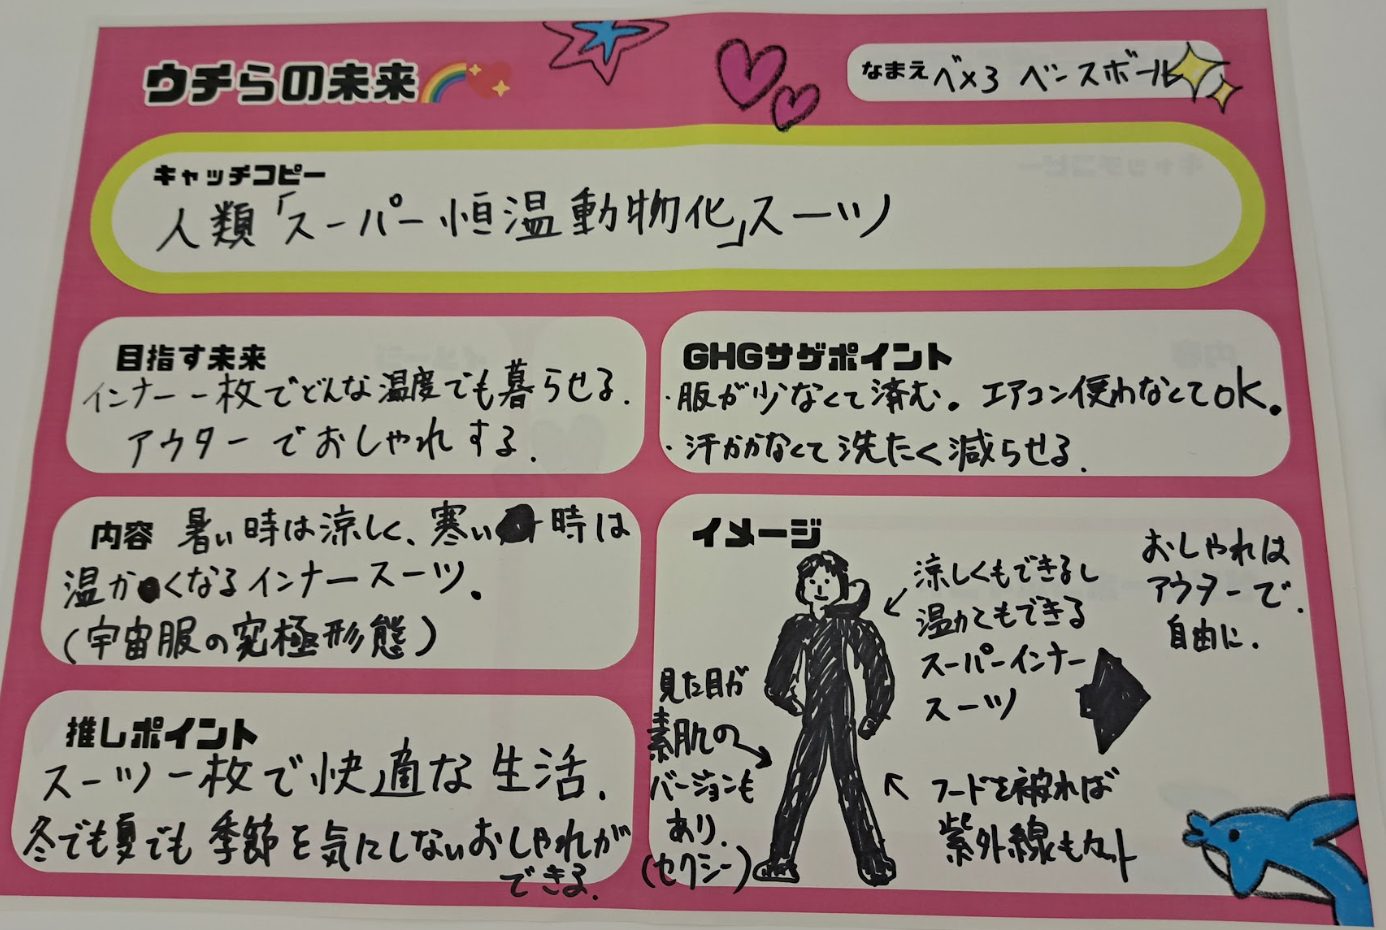 ウチらの未来
なまえ ベ×3 ベンスボール
キャッチコピー
人類「スーパー恒温動物化」スーツ
目指す未来
インナー一枚でどんな温度でも暮らせる.
アウターでおしゃれする.
GHGサゲポイント
・服が少なくて済む。エアコン使わなくてOK。
・汗かかなくて洗たく減らせる.
内容 暑い時は涼しく、寒い時は
温かくなるインナースーツ.
(宇宙服の究極形態)
推しポイント
スーツ一枚で快適な生活.
冬でも夏でも季節を気にしないおしゃれが
できる.
イメージ
涼しくもできるし
温かくもできる
スーパーインナー
スーツ
おしゃれは
アウターで.
自由に.
見た目が
素肌の
バージョンも
あり.
(セクシー)
フードを被れば
紫外線もカット